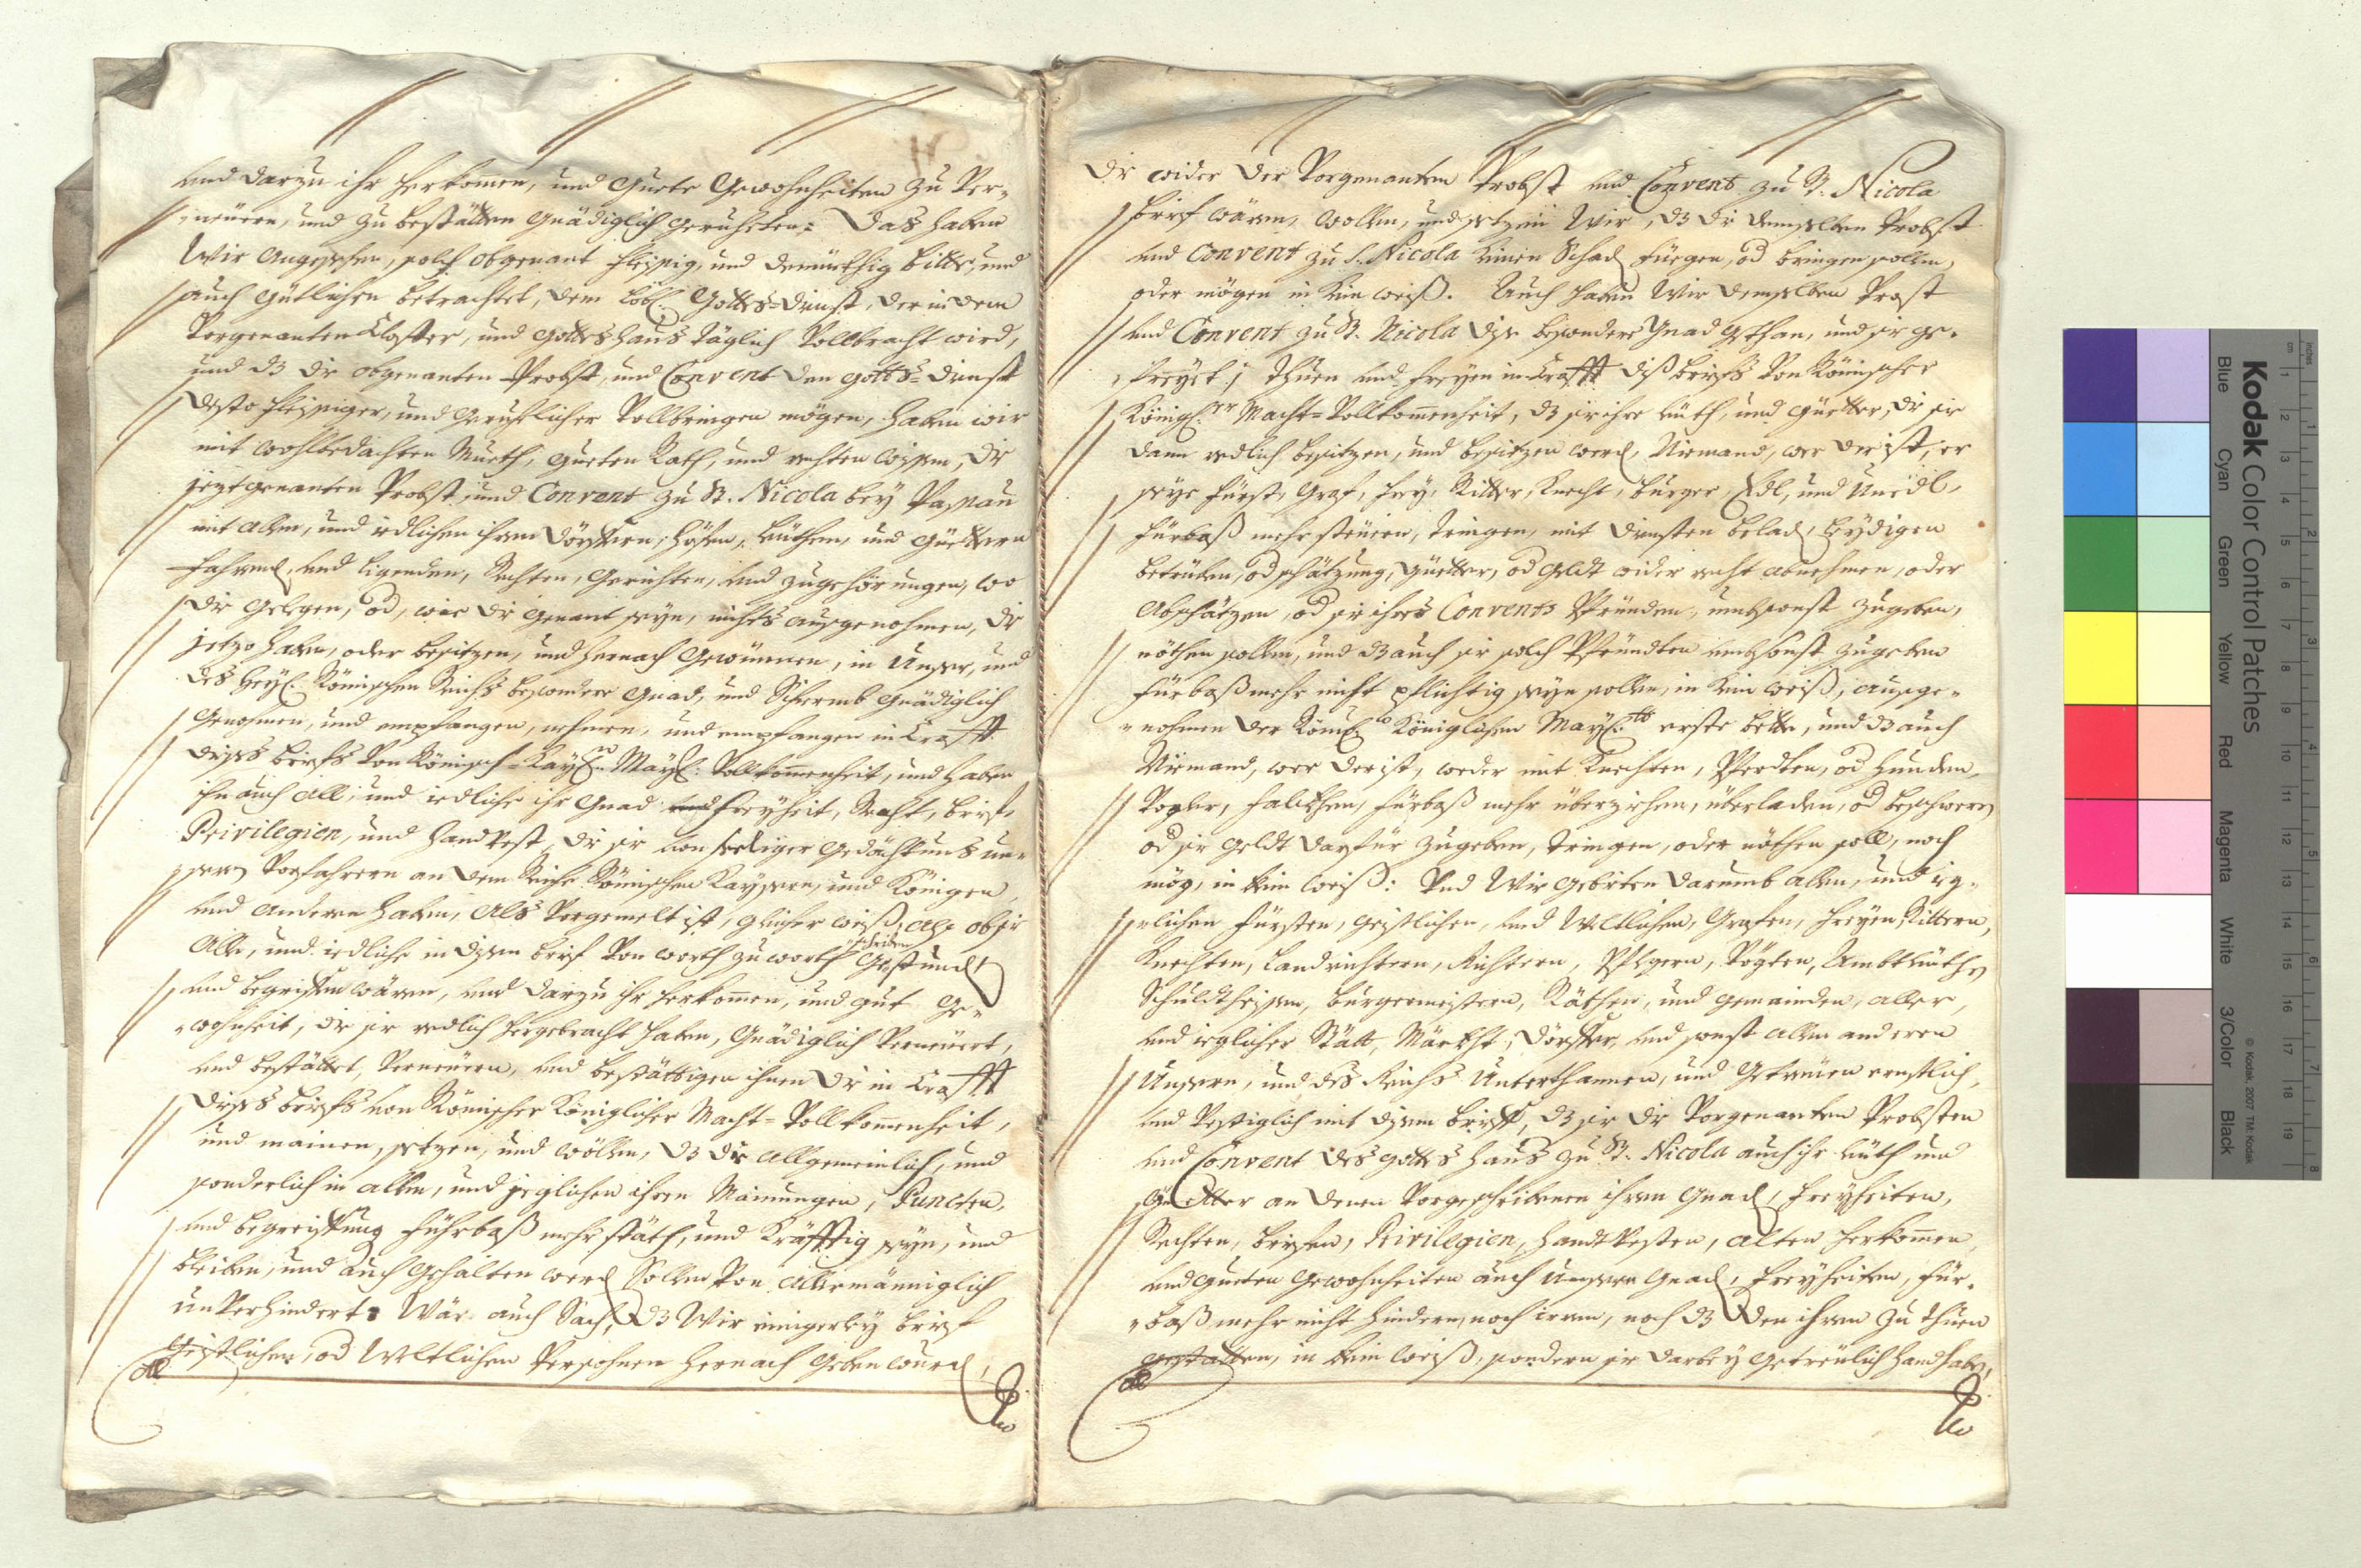 und darzu ihr herkom̄en, und Guete Gewohnheiten zu Ver-
neüern, und zu bestätten Gnädiglich Geruheten: Das haben
Wir Angesehen, solch obgenant fleissig, und demüethig bitte, und
auch Gütlichen betrachtet, dem Löbl: Gottes-dienst, der in dem
Vorgenanten Closter, und Gotteshaus täglich Vollbracht wird,
und dz die obgenanten Probst, und Convent den Gotts-dienst
desto fleissiger, und Geruhelicher Vollbringen mögen, haben wir
mit wohlbedachten Mueth, gueten Rath, und rechten wissen, die
jeztgenanten Probst, und Convent zu St. Nicola bey Passau
mit allen, und iedlichen ihren Dörffern, Höfen, Leüthen, und Güettern
fahrend, und ligenden, Rechten, Gerichten, und zugehörungen, wo
die Gelegen, od, wie die Genant seyn, nichts ausgenohmen, die
jetzo haben, oder besitzen, und hernach Gewünnen, in Unser, und
des Heyl: Römischen Reichs besondere Gnad, und Schermb Gnädiglich
Genohmen, und empfangen, nehmen, und empfangen in Crafft
dieses briefs von Römisch-Kayl: Mayl: Vollkom̄enheit, und haben
ihn auch all, und iedliche ihr Gnad freyheit, Recht, brief,
Privilegien, und Handvest, die sie von seeliger Gedächtnus un-
sern Vorfahrern an dem Reiche Römischen Kaysern, und Königen,
und anderen haben, als Vorgemelt ist, gleicher weiß, als ob sie
Alle, und iedliche in disem brief Von worth zu worth Geschriben stund
und begriffen wären, und darzu ihr herkom̄en, und gut Ge-
wohnheit, die sie redlich hergebracht haben, Gnädiglich Verneüert,
und bestättet, Verneüern, und bestättigen ihnen die in Crafft
dieses briefs von Römischer Königlicher Macht-Vollkom̄enheit,
und mainen, setzen, und wöllen, dz die allgemeinlich, und
sonderlich in allen, und jeglichen ihren Mainungen, Puncten,
und begreiffung führbaß mehr stäth, und Kräfftig seyn, und
bleiben, und auch Gehalten werd Sollen Von Allermänniglich
unVerhindert. Wär auch Sach, dz Wir einigerley brief
Geistlichen, od Weltlichen Persohnen hernach Geben wurd,
die wider der Vorgenanten Probst und Convent zu St. Nicola
brief wären, wollen, und setzen Wir, dz die demselben Probst
und Convent zu S. Nicola keinen Schad fuegen, od bringen sollen,
oder mögen in kein weiß. Auch haben Wir demselben Prost
und Convent zu St. Nicola dise besondere Gnad gethan, und sie ge-
freyet, thuen und freyen in Crafft diß briefs Von Römischer
Königl:er Macht-Vollkom̄enheit, dz sie ihre Leüth, und Güetter, die sie
dann redlich besitzen, und besitzen werd, Niemand, wer der ist, er
seye Fürst, Graf, frey, Ritter, Knecht, burger, Edl, und Unedl,
fürbaß mehr steüern, tringen, mit diensten belad, leydigen
betrüben, od schätzung, Güetter, od Geldt wider recht abnehmen, oder
Abschätzen, od sie ihres Convents Pfründen, umbsonst zugeben,
nöthen sollen, und dz auch sie solch Pfründten umbsonst zugeben
fürbaß mehr nicht pflichtig seyn sollen, in kein weiß, ausge-
nohmen der Röml: Königlichen Mayl:tt erste bette, und dz auch
Niemand, wer der ist, weder mit Knechten, Pferdten, od Hunden,
Vogler, falckhen, fürbaß mehr überziehen, überladen, od beschweren
od sie Geldt darfür zugeben, tringen, oder nöthen soll, noch
mög, in kein weiß: Und Wir Gebieten darumb allen, und ieg-
lichen fürsten, Geistlichen, und Weltlichen, Grafen, freyen, Rittern,
Knechten, Landrichtern, Richtern, Pflegern, Vögten, Ambtleüthen
Schuldtheissen, burgermeistern, Räthen, und Gemainden, aller,
und ieglicher Stätt, Märckht, Dörffer, und sonst allen anderen
Unseren, und des Reichs Unterthannen, und Getreüen ernstlich,
und Vestiglich mit disem brieff, dz sie die Vorgenanten Probsten
und Convent des Gottshaus zu St. Nicola auch ihr Leüth und
Güetter an denen Vorgeschribenen ihren Gnad, freyheiten,
Rechten, briefen, Privilegien, Handtvesten, alten herkom̄en,
und Gueten Gewohnheiten auch Unsern Gnad, freyheiten, für-
baß mehr nicht hindern, noch irren, noch dz den ihren zu thuen
gestatten, in kein weiß, sondern sie darbey getreülich handhaben,